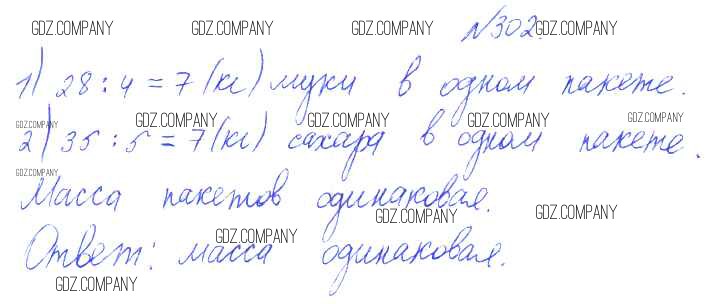 GDZ.COMPANY GDZ.COMPANY GDZ.COMPANY №302. GDZ.COMPANY
1) 28 : 4 = 7 (кг) муки в одном пакете.
GDZ.COMPANY GDZ.COMPANY GDZ.COMPANY GDZ.COMPANY GDZ.COMPANY
2) 35 : 5 = 7 (кг) сахара в одном пакете.
GDZ.COMPANY
Масса пакетов одинаковая.
GDZ.COMPANY GDZ.COMPANY
GDZ.COMPANY
Ответ: масса одинаковая.
GDZ.COMPANY